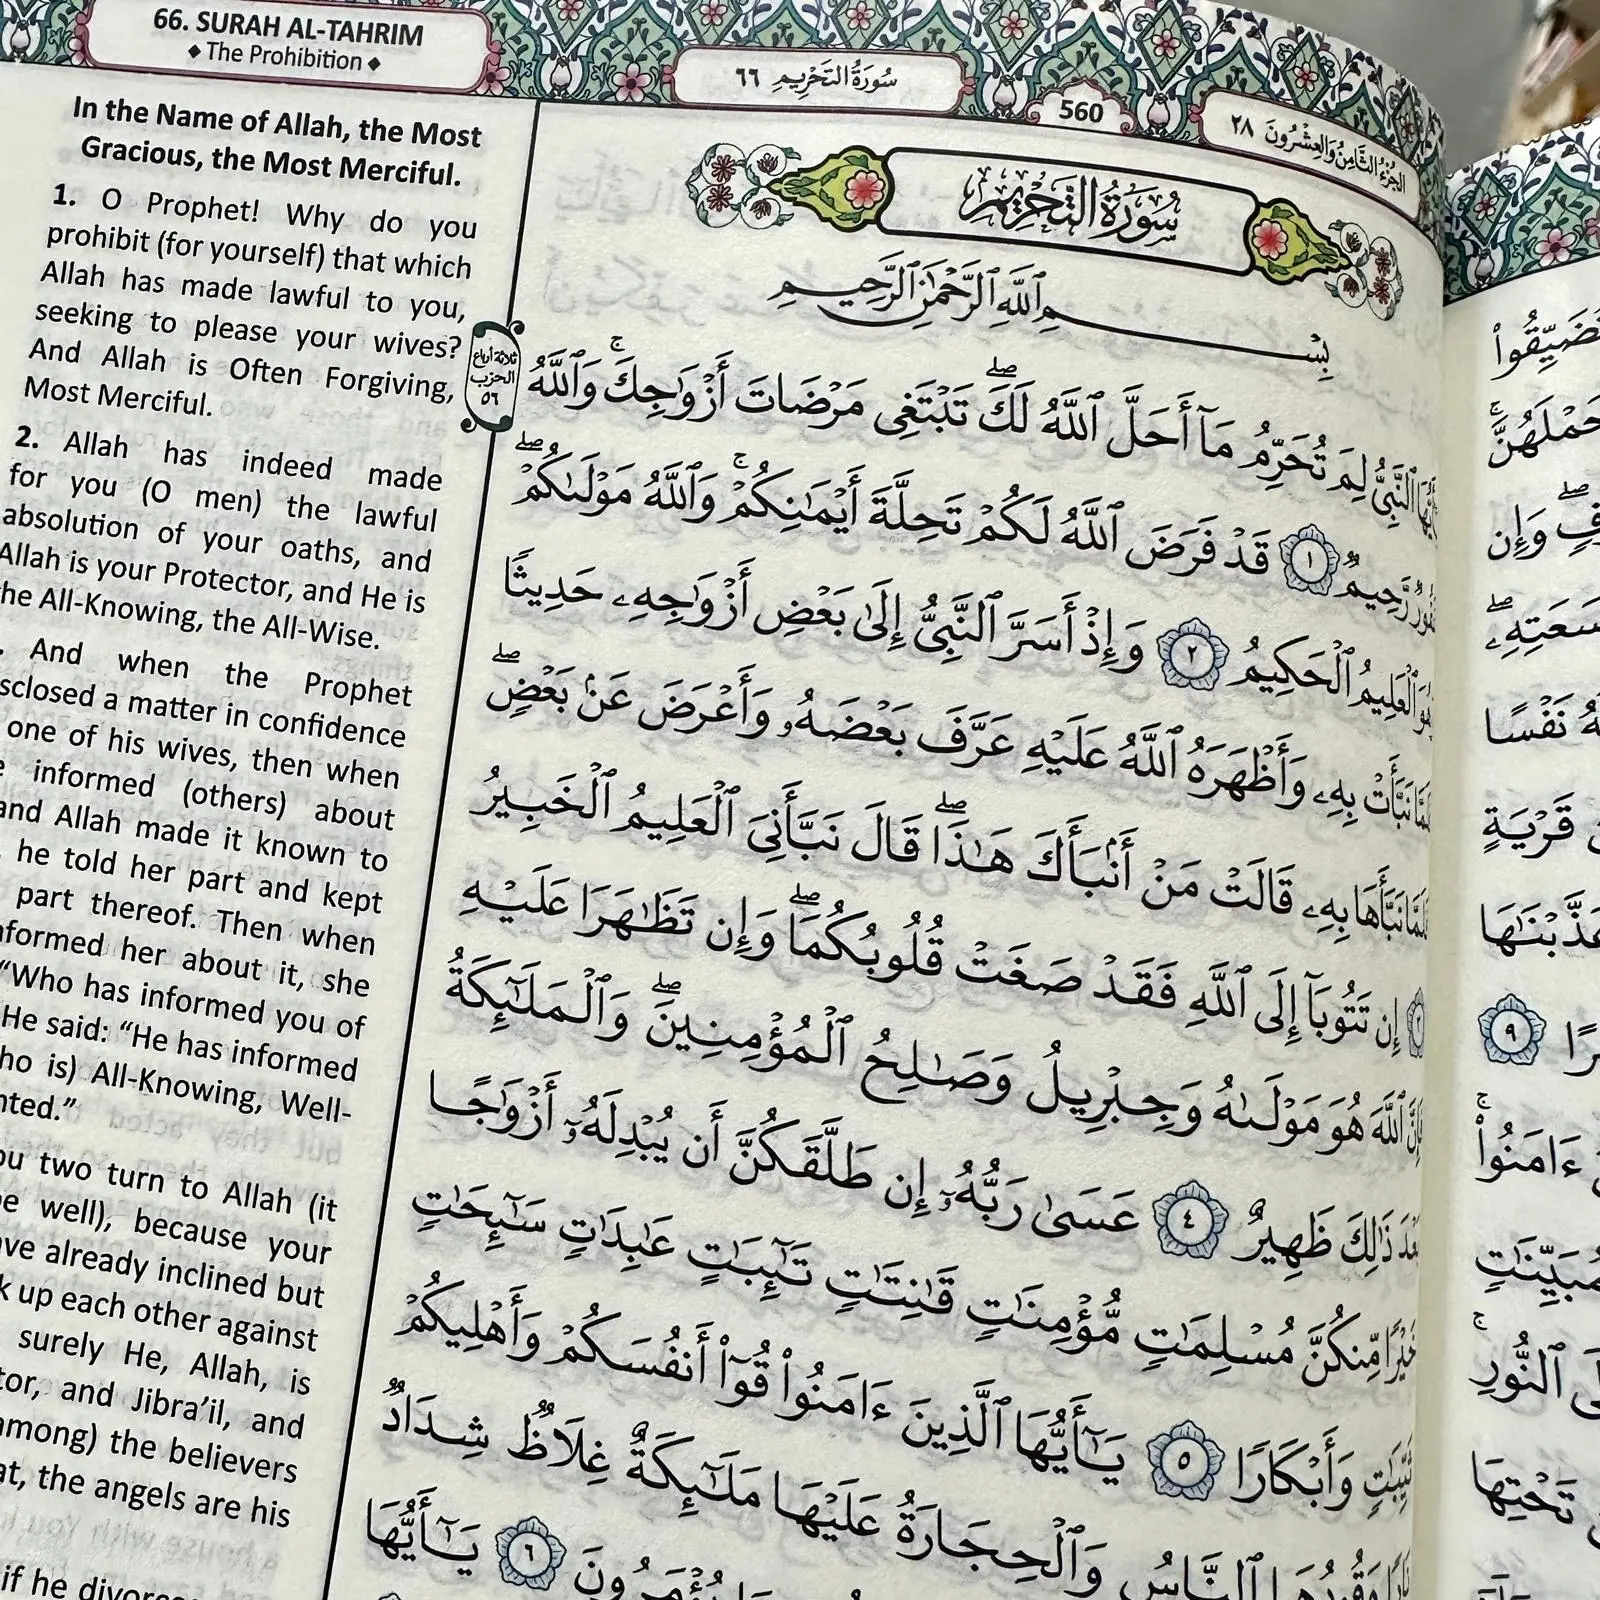 66. SURAH AL-TAHRIM
The Prohibition
سُورَةُ التَّحْرِيمِ ٦٦
560
الجُزْءُ الثَّامِنُ وَالعِشْرُونَ ٢٨
In the Name of Allah, the Most
Gracious, the Most Merciful.
1. O Prophet! Why do you
prohibit (for yourself) that which
Allah has made lawful to you,
seeking to please your wives?
And Allah is Often Forgiving,
Most Merciful.
2. Allah has indeed made
for you (O men) the lawful
absolution of your oaths, and
Allah is your Protector, and He is
the All-Knowing, the All-Wise.
And when the Prophet
sclosed a matter in confidence
one of his wives, then when
informed (others) about
and Allah made it known to
he told her part and kept
part thereof. Then when
nformed her about it, she
"Who has informed you of
He said: "He has informed
ho is) All-Knowing, Well-
nted."
ou two turn to Allah (it
be well), because your
ave already inclined but
k up each other against
surely He, Allah, is
tor, and Jibra'il, and
among) the believers
at, the angels are his
if he divorce
ثلاثة أرباع
الحزب
٥٦
سُورَةُ التَّحْرِيمِ
بِسْمِ ٱللَّهِ ٱلرَّحْمَٰنِ ٱلرَّحِيمِ
ٱلنَّبِيُّ لِمَ تُحَرِّمُ مَآ أَحَلَّ ٱللَّهُ لَكَ ۖ تَبْتَغِى مَرْضَاتَ أَزْوَٰجِكَ ۚ وَٱللَّهُ
رَّحِيمٌ ١ قَدْ فَرَضَ ٱللَّهُ لَكُمْ تَحِلَّةَ أَيْمَٰنِكُمْ ۚ وَٱللَّهُ مَوْلَىٰكُمْ ۖ
ٱلْعَلِيمُ ٱلْحَكِيمُ ٢ وَإِذْ أَسَرَّ ٱلنَّبِىُّ إِلَىٰ بَعْضِ أَزْوَٰجِهِۦ حَدِيثًا
نَبَّأَتْ بِهِۦ وَأَظْهَرَهُ ٱللَّهُ عَلَيْهِ عَرَّفَ بَعْضَهُۥ وَأَعْرَضَ عَنۢ بَعْضٍ ۖ
نَبَّأَهَا بِهِۦ قَالَتْ مَنْ أَنۢبَأَكَ هَٰذَا ۖ قَالَ نَبَّأَنِىَ ٱلْعَلِيمُ ٱلْخَبِيرُ
٣ إِن تَتُوبَآ إِلَى ٱللَّهِ فَقَدْ صَغَتْ قُلُوبُكُمَا ۖ وَإِن تَظَٰهَرَا عَلَيْهِ
ٱللَّهَ هُوَ مَوْلَىٰهُ وَجِبْرِيلُ وَصَٰلِحُ ٱلْمُؤْمِنِينَ ۖ وَٱلْمَلَٰٓئِكَةُ
بَعْدَ ذَٰلِكَ ظَهِيرٌ ٤ عَسَىٰ رَبُّهُۥٓ إِن طَلَّقَكُنَّ أَن يُبْدِلَهُۥٓ أَزْوَٰجًا
خَيْرًا مِّنكُنَّ مُسْلِمَٰتٍ مُّؤْمِنَٰتٍ قَٰنِتَٰتٍ تَٰٓئِبَٰتٍ عَٰبِدَٰتٍ سَٰٓئِحَٰتٍ
ثَيِّبَٰتٍ وَأَبْكَارًا ٥ يَٰٓأَيُّهَا ٱلَّذِينَ ءَامَنُوا۟ قُوٓا۟ أَنفُسَكُمْ وَأَهْلِيكُمْ
نَارًا وَقُودُهَا ٱلنَّاسُ وَٱلْحِجَارَةُ عَلَيْهَا مَلَٰٓئِكَةٌ غِلَاظٌ شِدَادٌ
يُؤْمَرُونَ ٦ يَٰٓأَيُّهَا
وَإِن
سَعَتِهِۦ ۖ
نَفْسًا
قَرْيَةٍ
٩
ءَامَنُوا۟ ۚ
مُبَيِّنَٰتٍ
ٱلنُّورِ ۚ
تَحْتِهَا